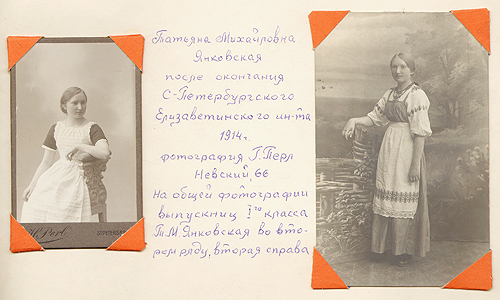 Татьяна Михайловна
Янковская
после окончания
С-Петербургского
Елизаветинского ин-та
1914г.
фотография Г. Перл
Невский, 66
На общей фотографии
выпускниц I го класса
Т.М. Янковская во вто-
ром ряду, вторая справа
Perl